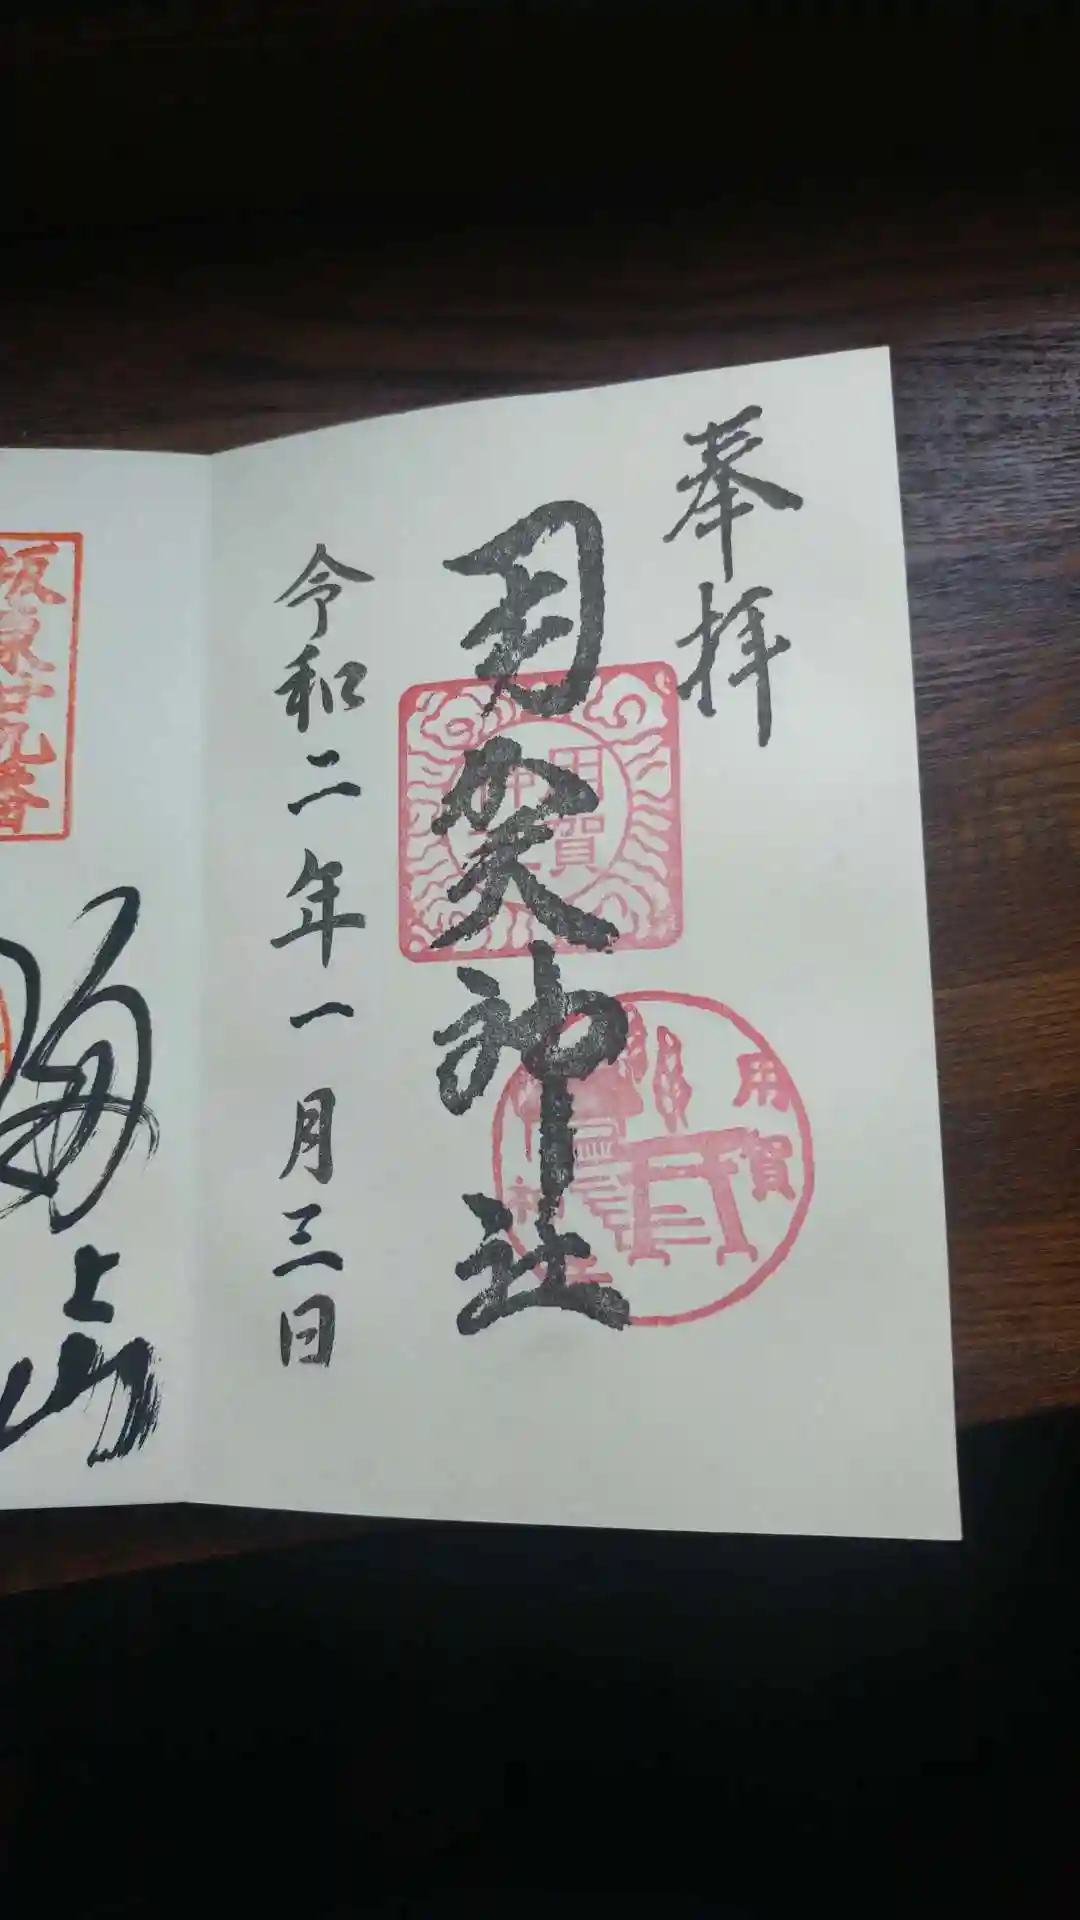 奉拝
用賀神社
令和二年一月三日
用賀
神社
用賀
神社
坂東廿九番
海上山